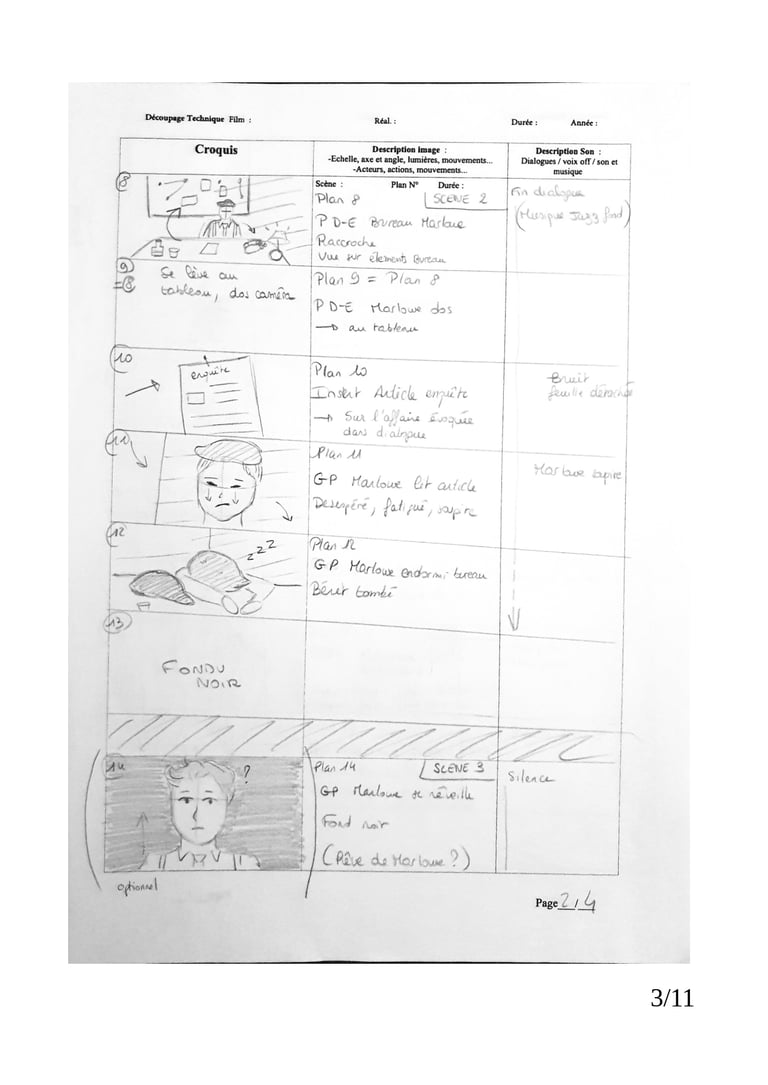 Découpage Technique Film :
Réal. :
Durée :
Année :
Croquis
Description image :
-Echelle, axe et angle, lumières, mouvements...
-Acteurs, actions, mouvements...
Description Son :
Dialogues / voix off / son et
musique
8
Scène :
Plan N°
Durée :
Plan 8
SCENE 2
P D-E Bureau Marlowe
Raccroche
Vue sur éléments Bureau
Fin dialogue
(Musique Jazz fond)
9
=8
Se lève au
tableau, dos caméra
Plan 9 = Plan 8
P D-E Marlowe dos
→ au tableau
10
enquête
Plan 10
Insert Article enquête
→ Sur l'affaire évoquée
dans dialogue
Bruit
feuille détachée
11
Plan 11
GP Marlowe lit article
Desespéré, fatigué, soupire
Marlowe soupire
12
zzz
Plan 12
GP Marlowe endormi bureau
Béret tombé
13
FONDU
NOIR
14
?
Plan 14
SCENE 3
GP Marlowe se réveille
Fond noir
(Rêve de Marlowe ?)
Silence
optionnel
Page 2/4
3/11